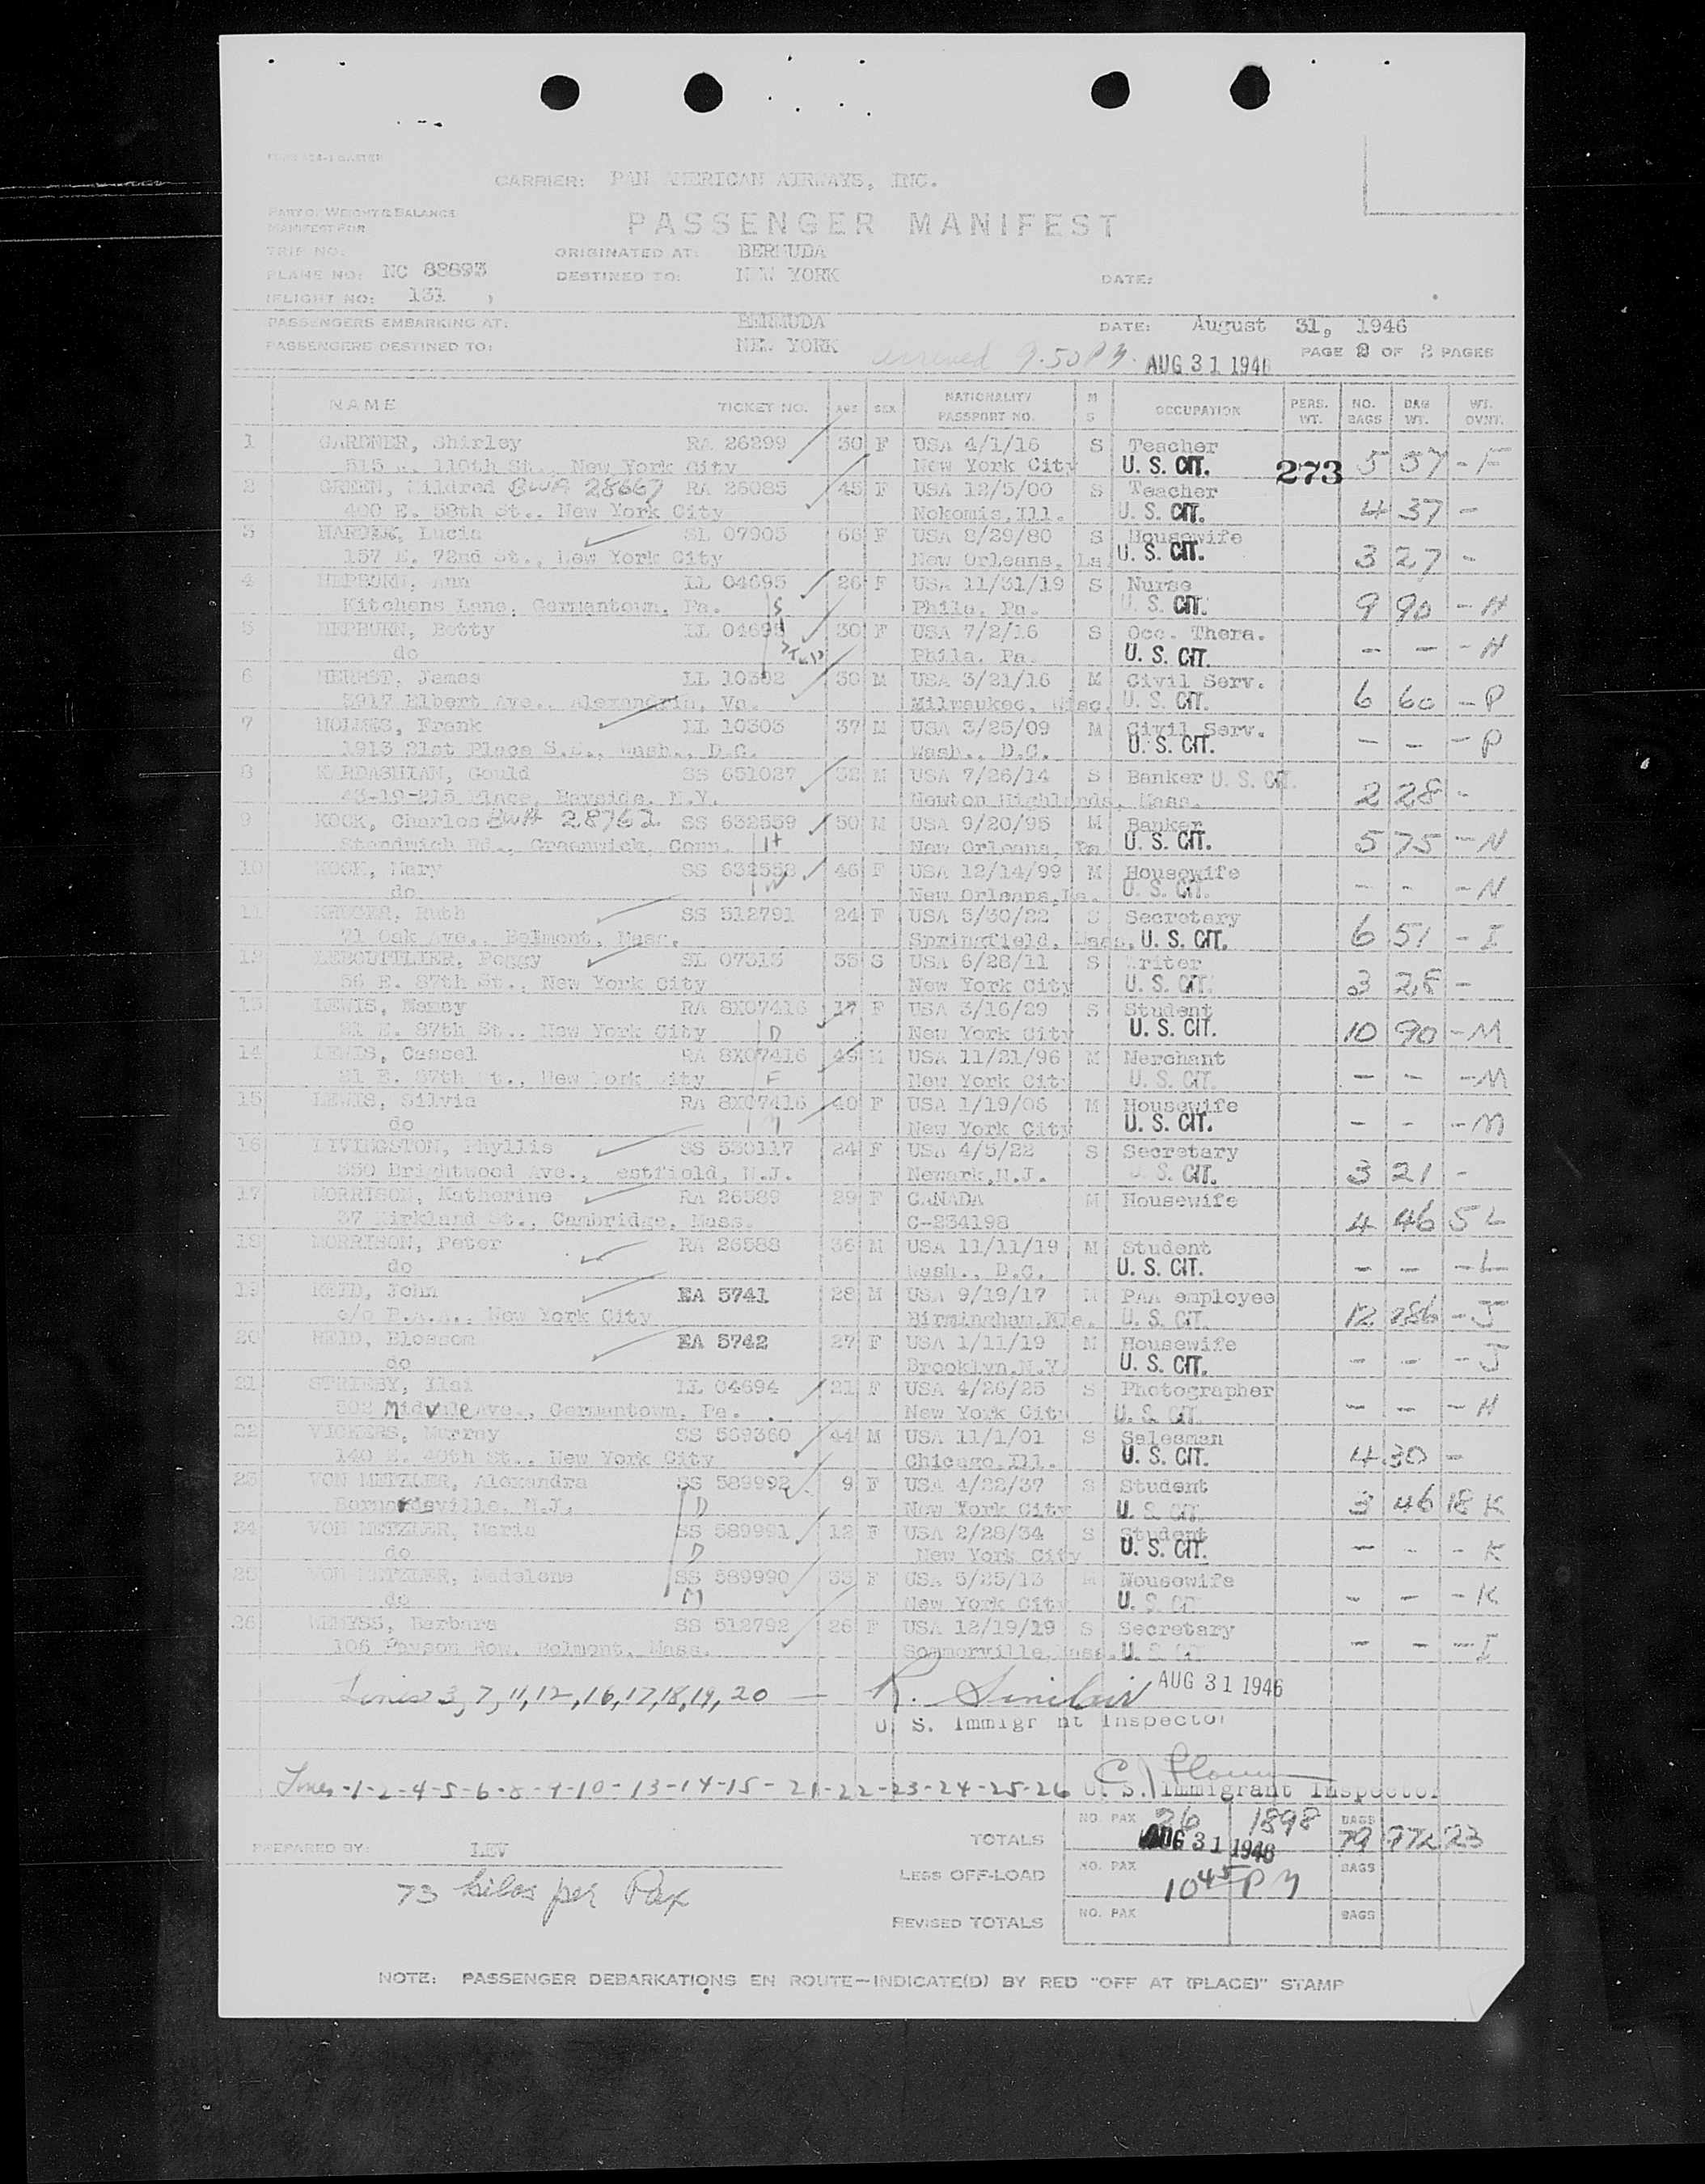 CARRIER: PAN AMERICAN AIRWAYS, INC.
PART OF WEIGHT & BALANCE
MANIFEST FOR
PASSENGER MANIFEST
TRIP NO. ORIGINATED AT: BERMUDA
PLANE NO: NC DESTINED TO: NEW YORK DATE:
(FLIGHT NO: 131 )
PASSENGERS EMBARKING AT: BERMUDA DATE: August 31, 1946
PASSENGERS DESTINED TO: NEW YORK PAGE OF PAGES
arrived 9.50 PM. AUG 31 1946
NAME TICKET NO. AGE SEX NATIONALITY PASSPORT NO. M S OCCUPATION PERS. WT. NO. BAGS BAG WT. WT. OVNT.
1 GARDNER, Shirley RA 26299 30 F USA 4/1/16 S Teacher
515 W. 110th St., New York City New York City U. S. CIT. 273 5 57 - F
2 GREEN, Mildred BWA 28667 RA 26085 45 F USA 12/5/00 S Teacher
400 E. 58th St., New York City Nokomis, Ill. U. S. CIT. 4 37 -
3 Lucia SL 07905 66 F USA 8/29/80 S Housewife
157 E. 72nd St., New York City New Orleans, La. U. S. CIT. 3 27 -
4 HEPBURN, Ann LL 04695 26 F USA 11/31/19 S Nurse
Kitchens Lane, Germantown, Pa. S Phila, Pa. U. S. CIT. 9 90 - H
5 HEPBURN, Betty LL 30 F USA 7/2/16 S Occ. Thera.
do Phila. Pa. U. S. CIT. - - - H
6 HERBST, James LL 10302 30 M USA 3/21/16 M Civil Serv.
3917 Elbert Ave., Alexandria, Va. Milwaukee, Wisc. U. S. CIT. 6 60 - P
7 HOLMES, Frank LL 10303 37 M USA 3/25/09 M Civil Serv.
1913 21st Place S.E., Wash., D.C. Wash., D.C. U. S. CIT. - - - P
8 KARDASHIAN, Gould SS 651027 32 M USA 7/26/14 S Banker U. S. CIT.
43-19-215 Place, Bayside, N.Y. Newton Highlands, Mass. 2 28 -
9 KOCK, Charles BWA 28762 SS 632559 50 M USA 9/20/95 M Banker
Standwich Rd., Greenwich, Conn. H New Orleans, La U. S. CIT. 5 75 - N
10 KOCK, Mary SS 632558 46 F USA 12/14/99 M Housewife
do W New Orleans, La. U. S. CIT. - - - N
11 Ruth SS 512791 24 F USA 5/30/22 S Secretary
71 Oak Ave., Belmont, Mass. Springfield, Mass. U. S. CIT. 6 51 - I
12 LEBOUTILLIER, Peggy SL 07313 35 S USA 6/28/11 S Writer
56 E. 87th St., New York City New York City U. S. CIT. 3 28 -
13 LEWIS, Nancy RA 8X07416 17 F USA 3/16/29 S Student
21 E. 87th St., New York City D New York City U. S. CIT. 10 90 - M
14 LEWIS, Cassel RA 8X07416 49 M USA 11/21/96 M Merchant
21 E. 87th St., New York City F New York City U. S. CIT. - - - M
15 LEWIS, Silvia RA 8X07416 40 F USA 1/19/06 M Housewife
do M New York City U. S. CIT. - - - M
16 LIVINGSTON, Phyllis SS 550117 24 F USA 4/5/22 S Secretary
550 Brightwood Ave., Westfield, N.J. Newark, N.J. U. S. CIT. 3 21 -
17 MORRISON, Katherine RA 26589 29 F CANADA M Housewife
37 Kirkland St., Cambridge, Mass. C-234198 4 46 5 L
18 MORRISON, Peter RA 26588 36 M USA 11/11/19 M Student
do Wash., D.C. U. S. CIT. - - - L
19 REID, John EA 5741 28 M USA 9/19/17 M PAA employee
c/o P.A.A., New York City Birmingham, U. S. CIT. 12 286 - J
20 REID, Blossom EA 5742 27 F USA 1/11/19 M Housewife
do Brooklyn, N.Y. U. S. CIT. - - - J
21 STRIEBY, LL 04694 21 F USA 4/26/25 S Photographer
502 Midvale Ave., Germantown, Pa. New York City U. S. CIT. - - - H
22 VICKERS, Murray SS 569360 44 M USA 11/1/01 S Salesman
140 E. 40th St., New York City Chicago, Ill. U. S. CIT. 4 30 -
23 VON METZLER, Alexandra SS 589992 9 F USA 4/22/37 S Student
Bernardsville, N.J. D New York City U. S. CIT. 3 46 18 K
24 VON METZLER, Maria SS 589991 12 F USA 2/28/34 S Student
do D New York City U. S. CIT. - - - K
25 VON METZLER, Madelene SS 589990 33 F USA 5/25/13 M Housewife
do M New York City U. S. CIT. - - - K
26 Barbara SS 512792 26 F USA 12/19/19 S Secretary
106 Payson Row, Belmont, Mass. Sommerville, Mass. U. S. CIT. - - - I
Lines 3, 7, 11, 12, 16, 17, 18, 19, 20 — R. Sinclair AUG 31 1946
U. S. Immigrant Inspector
Lines -1-2-4-5-6-8-9-10-13-14-15-21-22-23-24-25-26 U. S. Immigrant Inspector
TOTALS NO. PAX 26 1898 BAGS 79 972 23
AUG 31 1946
PREPARED BY: LEV
LESS OFF-LOAD NO. PAX 10 45 PM BAGS
73 kilos per Pax
REVISED TOTALS NO. PAX BAGS
NOTE: PASSENGER DEBARKATIONS EN ROUTE—INDICATE(D) BY RED "OFF AT (PLACE)" STAMP